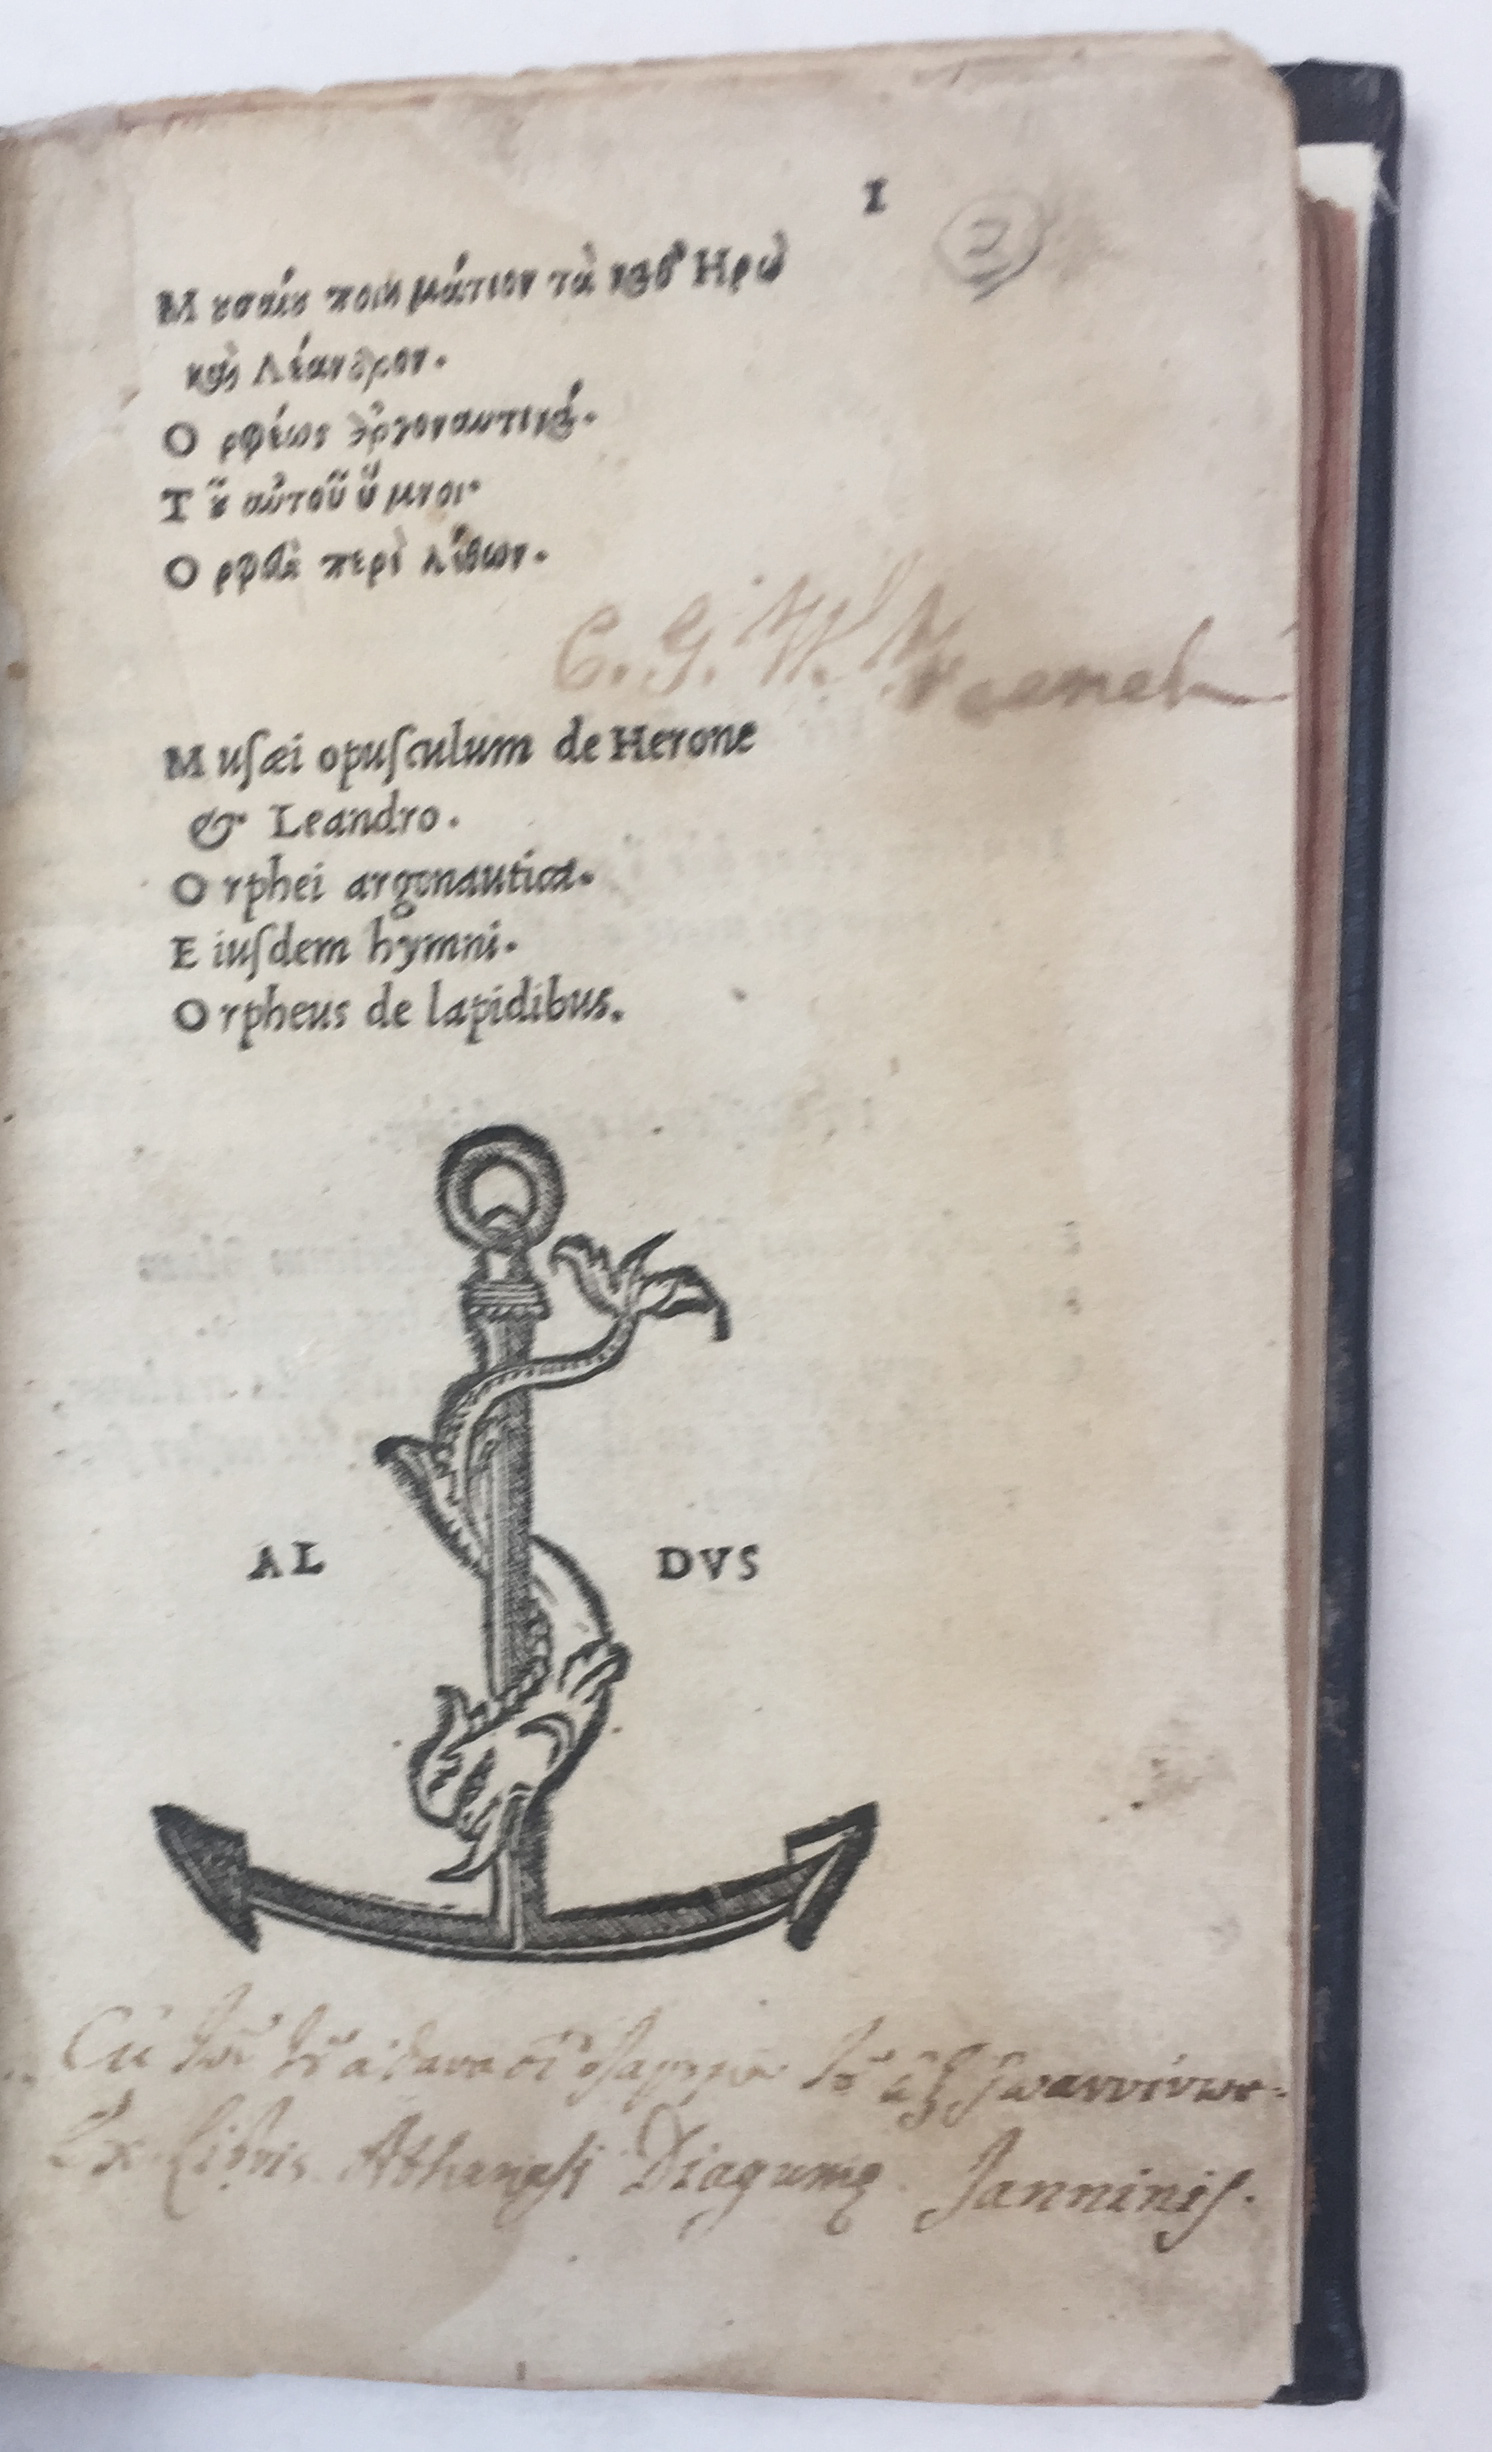 I
2
Μ ȣσαίȣ ποιημάτιον τὰ καθ' Ηρὼ
καὶ Λέανδρον.
Ο ρφέως ἀργοναυτικά.
Τ ȣ͂ αὐτοῦ ὕμνοι.
Ο ρφεὺς περὶ λίθων.
C. G. W.
M uſæi opuſculum de Herone
& Leandro.
O rphei argonautica.
E iuſdem hymni.
O rpheus de lapidibus.
AL DVS
τοῦ ἐξ Ἰωαννίνων.
Ex Libris Athanasi Janninis.